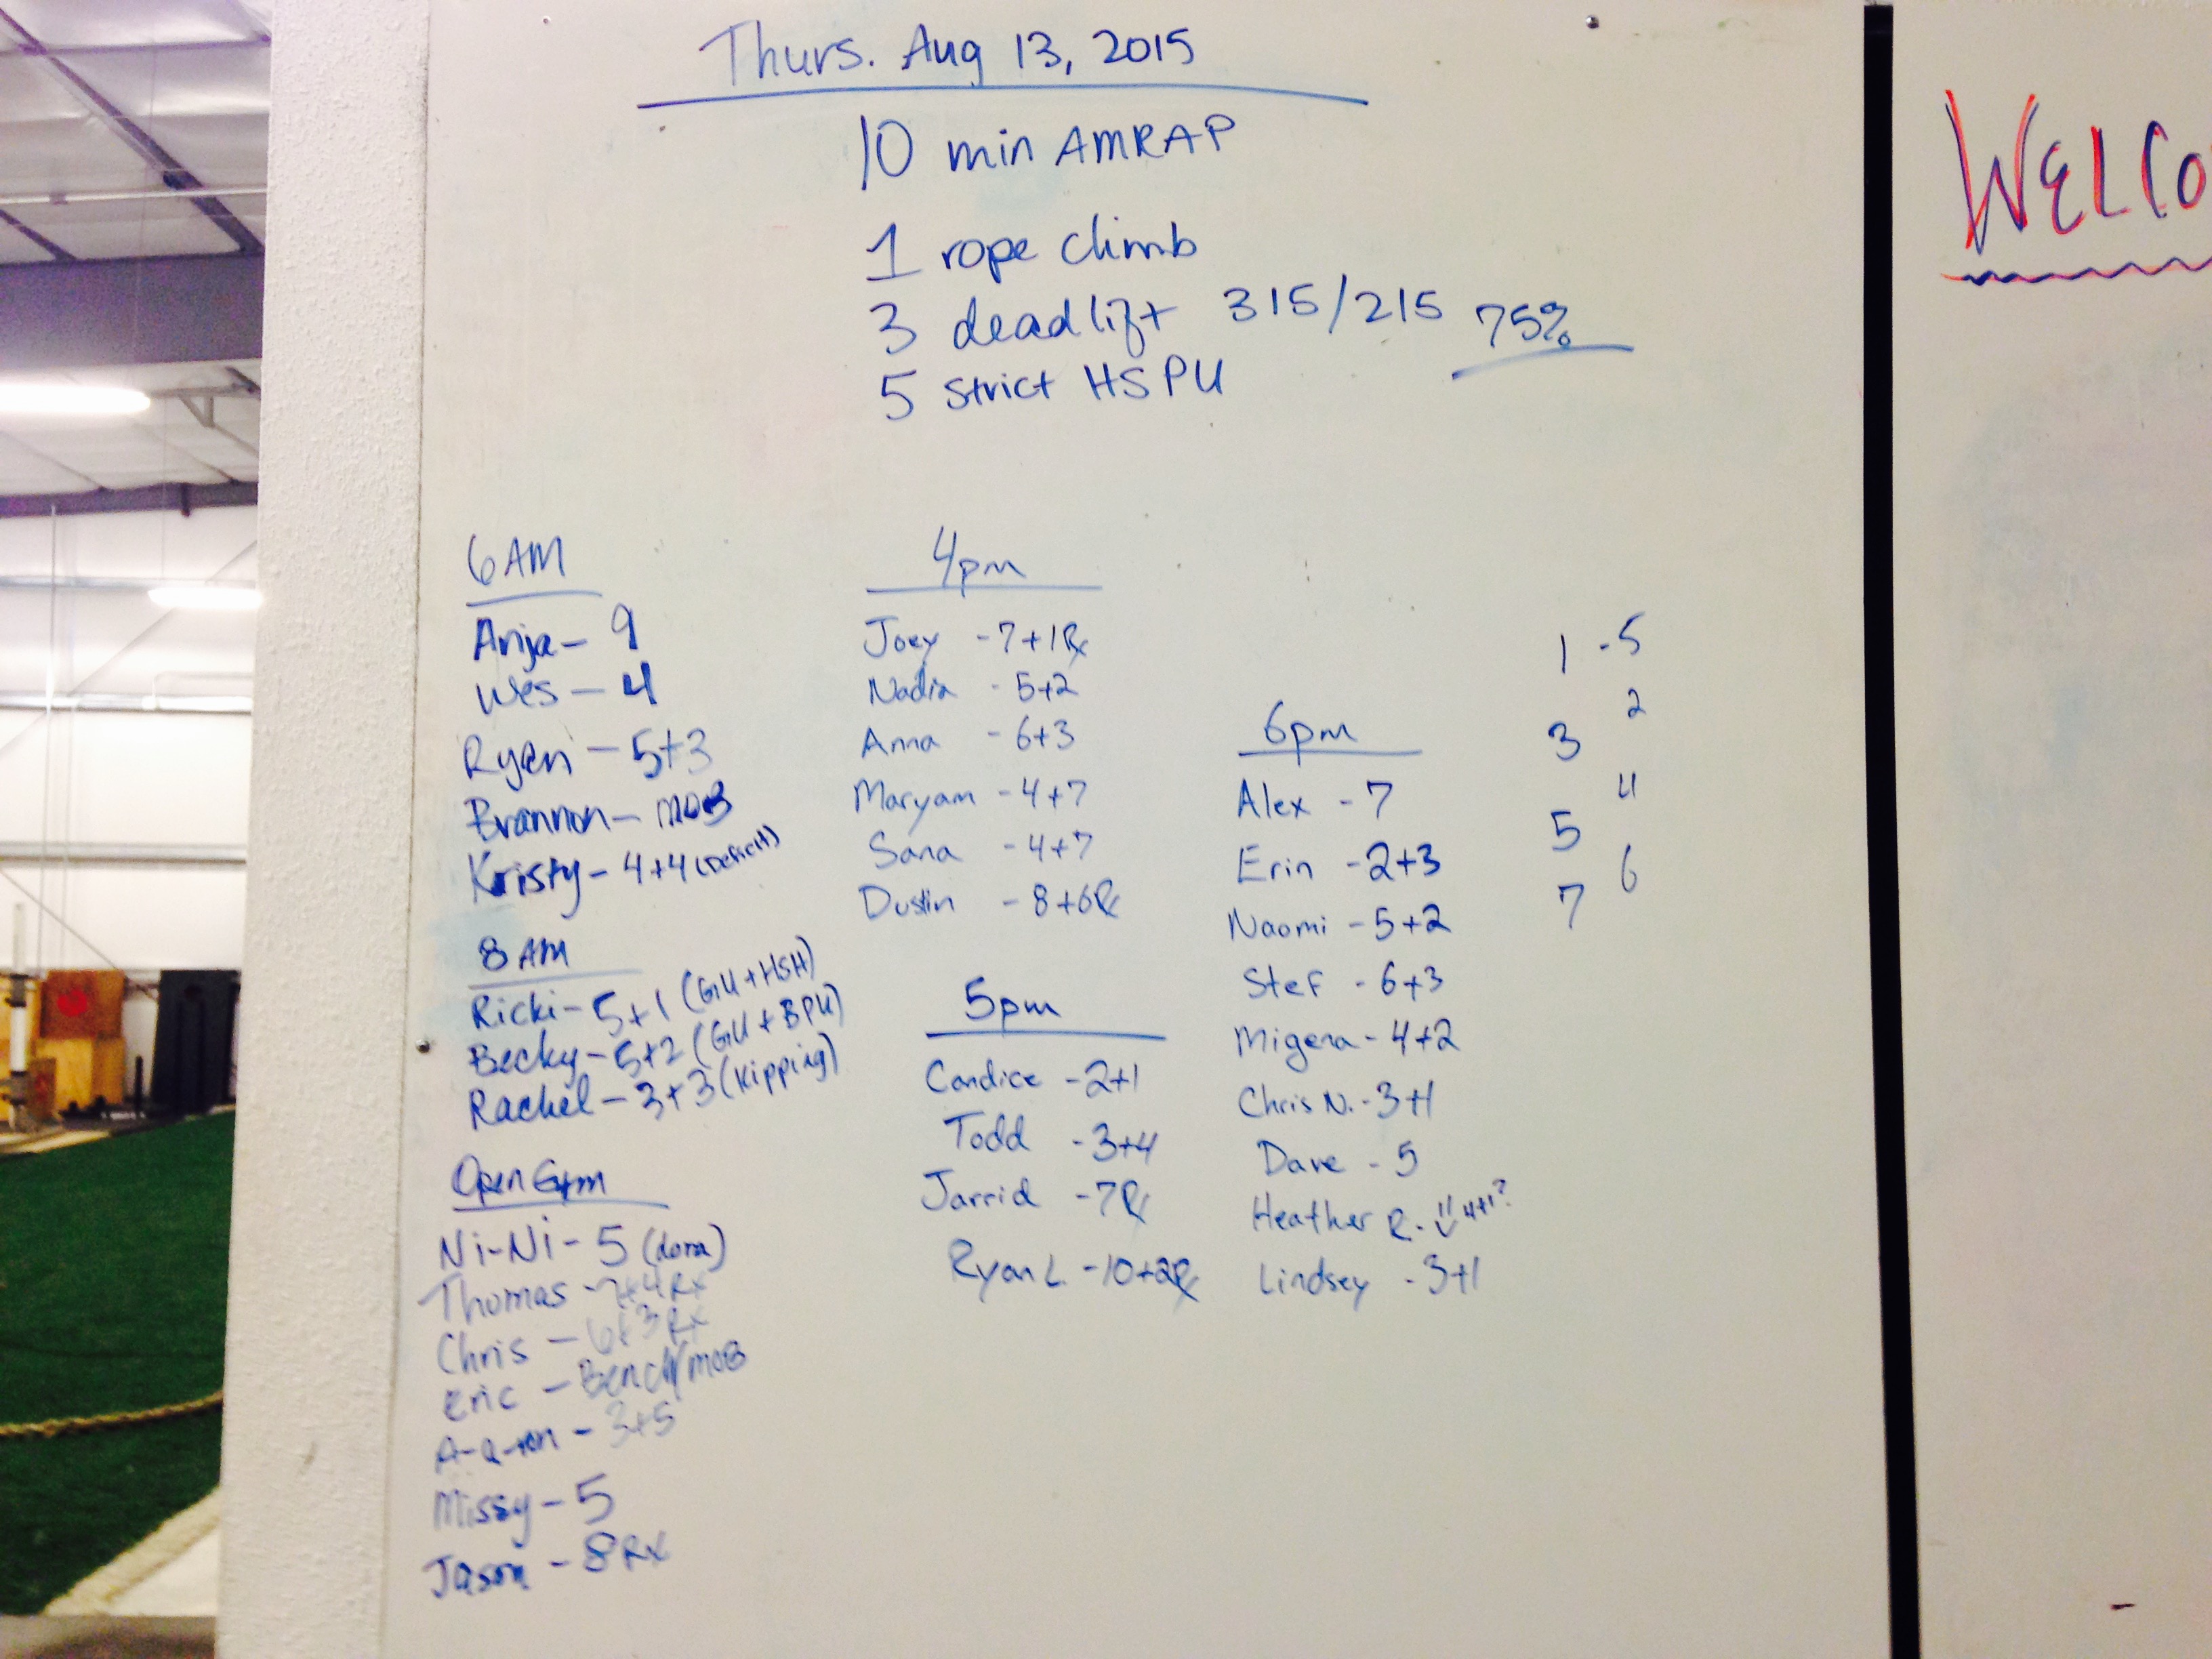 Thurs. Aug 13, 2015
10 min AMRAP
1 rope climb
3 deadlift 315/215 75%
5 strict HSPU
6AM
Anja - 9
Wes - 4
Ryan - 5+3
Brannon - MOB
Kristy - 4+4 (Deficit)
8AM
Ricki - 5+1 (GU + HSH)
Becky - 5+2 (GU + BPU)
Rachel - 3+3 (Kipping)
Open Gym
Ni-Ni - 5
Thomas - 7+4 Rx
Chris - 6+3 Rx
Eric - Bench/MOB
A-a-ron - 3+5
Missy - 5
Jason - 8 Rx
4pm
Joey - 7+1 Rx
Nadia - 5+2
Anna - 6+3
Maryam - 4+7
Sana - 4+7
Dustin - 8+6 Rx
5pm
Candice - 2+1
Todd - 3+4
Jarrid - 7 Rx
Ryan L - 10+2 Rx
6pm
Alex - 7
Erin - 2+3
Naomi - 5+2
Stef - 6+3
Migena - 4+2
Chris N. - 3+1
Dave - 5
Heather R. - 4+1?
Lindsey - 3+1
1 - 5
2
3
4
5
6
7
WELCO